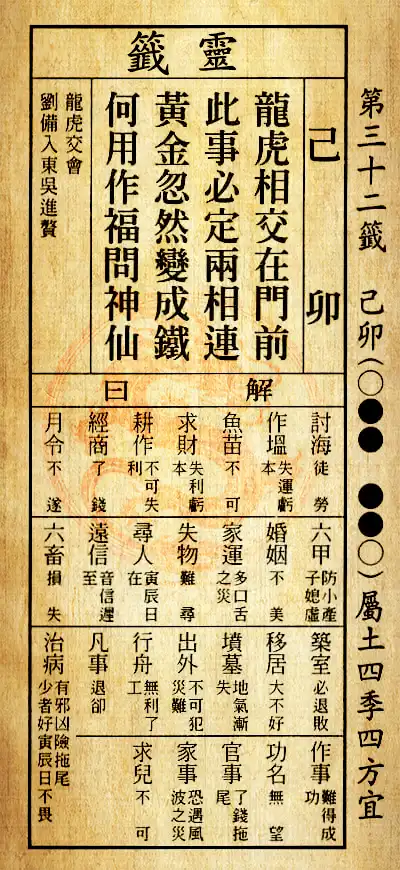 第三十二籤 己卯(○●● ●●○)屬土四季四方宜
靈籤
己卯
龍虎相交在門前
此事必定兩相連
黃金忽然變成鐵
何用作福問神仙
龍虎交會
劉備入東吳進贅
解曰
討海 徒勞
作塭 失運虧本
魚苗 不可
求財 失利虧本
耕作 不可失利
經商 了錢
月令 不遂
六甲 防小產子媳虛
婚姻 不美
家運 多口舌之災
失物 難尋
尋人 寅辰日在
遠信 音信遲至
六畜 損失
築室 必退敗
移居 大不好
墳墓 地氣漸失
出外 不可犯災難
行舟 無利了工
凡事 退卻
治病 有邪凶險拖尾少者好寅辰日不畏
作事 難得成功
功名 無望
官事 了錢拖尾
家事 恐遇風波之災
求兒 不可